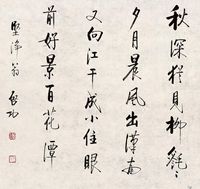 秋深猶見柳毿々
夕月晨風出漢南
又向江干成小住眼
前好景百花潭
堅淨翁
启功